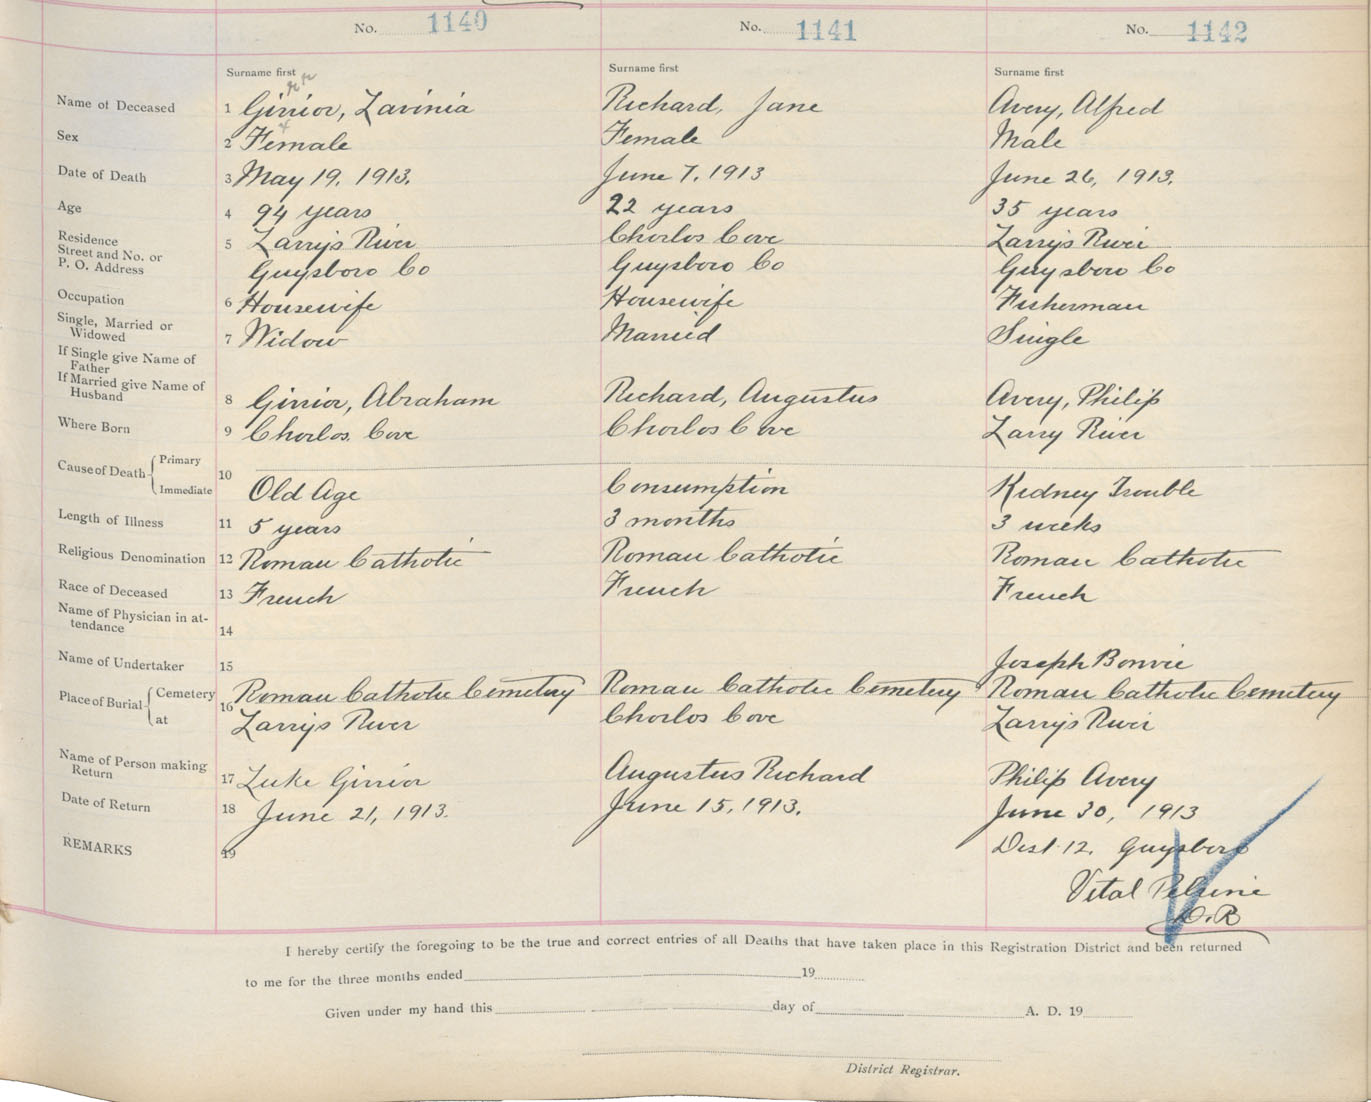 No. 1140 No. 1141 No. 1142
Surname first Surname first Surname first
rr
Name of Deceased 1 Girrior, Lavinia Richard, Jane Avery, Alfred
Sex 2 Female Female Male
Date of Death 3 May 19, 1913. June 7, 1913 June 26, 1913.
Age 4 94 years 22 years 35 years
Residence Street and No. or P. O. Address 5 Larry's River Chorlos Cove Larry's River
Guysboro Co Guysboro Co Guysboro Co
Occupation 6 Housewife Housewife Fisherman
Single, Married or Widowed 7 Widow Married Single
If Single give Name of Father
If Married give Name of Husband 8 Girrior, Abraham Richard, Augustus Avery, Philip
Where Born 9 Chorlos Cove Chorlos Cove Larry River
Cause of Death Primary
10
Immediate Old Age Consumption Kidney Trouble
Length of Illness 11 5 years 3 months 3 weeks
Religious Denomination 12 Roman Catholic Roman Catholic Roman Catholic
Race of Deceased 13 French French French
Name of Physician in attendance 14
Name of Undertaker 15 Joseph Bonvie
Place of Burial Cemetery 16 Roman Catholic Cemetery Roman Catholic Cemetery Roman Catholic Cemetery
at Larry's River Chorlos Cove Larry's River
Name of Person making Return 17 Luke Girrior Augustus Richard Philip Avery
Date of Return 18 June 21, 1913. June 15, 1913. June 30, 1913
REMARKS 19 Dist 12. Guysboro
Vital Pelrine
D.R
I hereby certify the foregoing to be the true and correct entries of all Deaths that have taken place in this Registration District and been returned
to me for the three months ended 19
Given under my hand this day of A. D. 19
District Registrar.